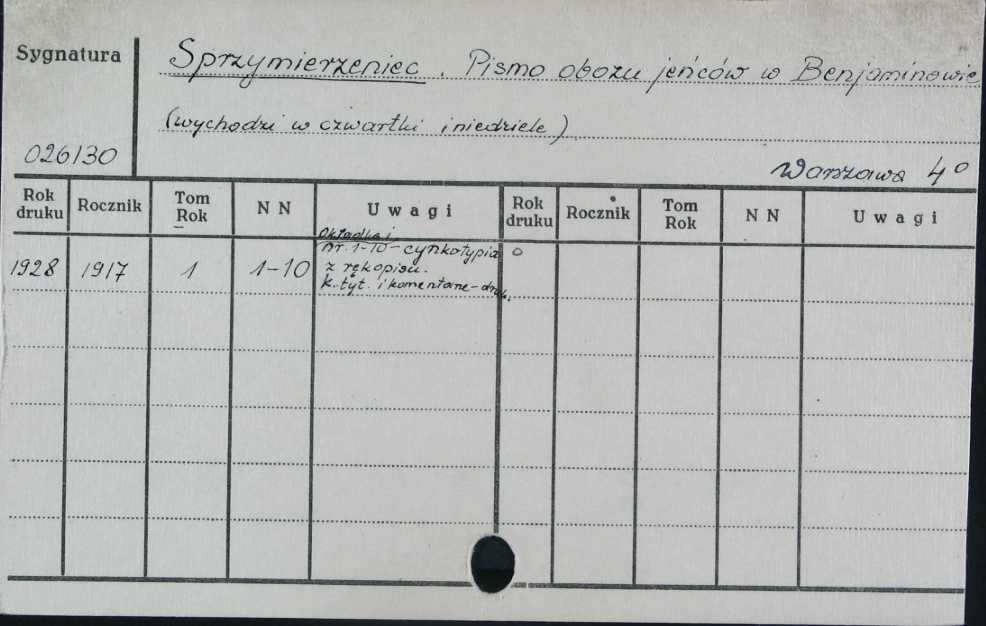 Sygnatura
Sprzymierzeniec. Pismo obozu jeńców w Benjaminowie
(wychodzi w czwartki i niedziele)
026130
Warszawa 4°
Rok druku Rocznik Tom Rok N N Uwagi Rok druku Rocznik Tom Rok N N Uwagi
1928 1917 1 1-10 Okładka i
nr. 1-10 - cynkotypia
z rękopisu.
k. tyt. i komentarze - druk.